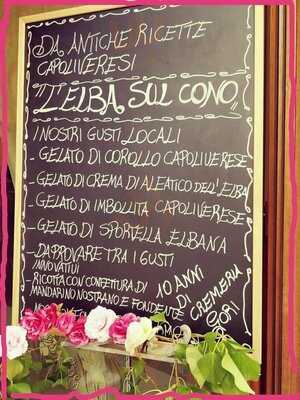 DA ANTICHE RICETTE
CAPOLIVERESI
"L'ELBA SUL CONO"
I NOSTRI GUSTI LOCALI
- GELATO DI COROLLO CAPOLIVERESE
- GELATO DI CREMA DI ALEATICO DELL'ELBA
- GELATO DI IMBOLLITA CAPOLIVERESE
- GELATO DI SPORTELLA ELBANA
- DA PROVARE TRA I GUSTI
INNOVATIVI
- RICOTTA CON CONFETTURA DI
MANDARINO NOSTRANO E FONDENTE
10 ANNI
DI
CREMERIA